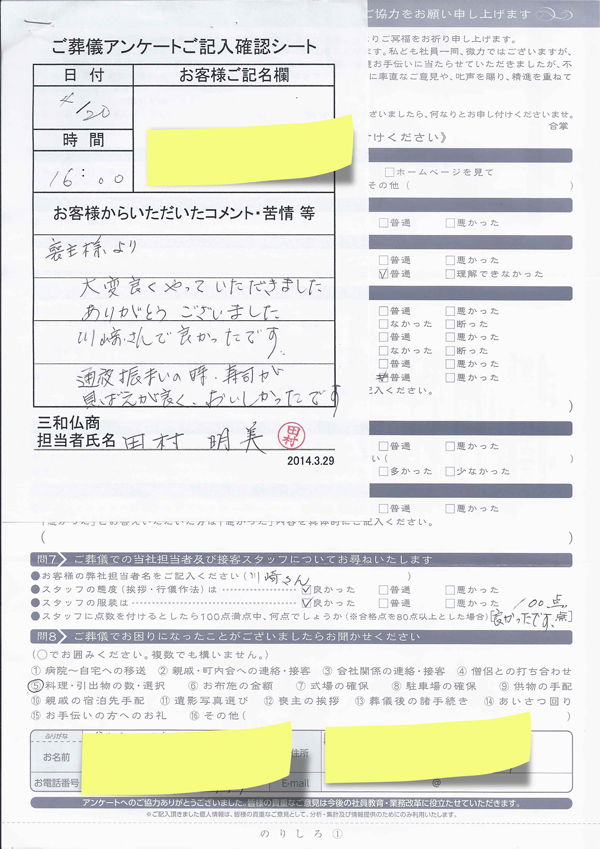 ご協力をお願い申し上げます
ご葬儀アンケートご記入確認シート
日 付
お客様ご記名欄
4/20
時 間
16:00
お客様からいただいたコメント・苦情 等
喪主様より
大変良くやっていただきました
ありがとうございました
川崎さんで良かったです
通夜振まいの時、寿司が
見ばえが良く、おいしかったです
三和仏商
担当者氏名 田村 明美
田村
2014.3.29
りご冥福をお祈り申し上げます。
す。私ども社員一同、微力ではございますが、
お手伝いに当たらせていただきましたが、不
に率直なご意見や、叱声を賜り、精進を重ねて
ざいましたら、何なりとお申し付けくださいませ。
合掌
付けください》
□ホームページを見て
その他（ ）
□普通 □悪かった
□普通 □悪かった
☑普通 □理解できなかった
□普通 □悪かった
□なかった □断った
□普通 □悪かった
□なかった □断った
□普通 □悪かった
☑普通 □悪かった
記入ください。
）
□普通 □悪かった
い（ ）
□多かった □少なかった
□普通 □悪かった
「悪かった」とお答えいただいた方は「悪かった」内容を具体的にご記入ください。
（ ）
問7 ご葬儀での当社担当者及び接客スタッフについてお尋ねいたします
●お客様の弊社担当者名をご記入ください（川崎さん ）
●スタッフの態度（挨拶・行儀作法）は ☑良かった □普通 □悪かった
●スタッフの服装は ☑良かった □普通 □悪かった
100点
●スタッフに点数を付けるとしたら100点満点中、何点でしょうか（※合格点を80点以上とした場合）［良かったです。点］
問8 ご葬儀でお困りになったことがございましたらお聞かせください
（○でお囲みください。複数でも構いません。）
①病院～自宅への移送 ②親戚・町内会への連絡・接客 ③会社関係の連絡・接客 ④僧侶との打ち合わせ
⑤料理・引出物の数・選択 ⑥お布施の金額 ⑦式場の確保 ⑧駐車場の確保 ⑨供物の手配
⑩親戚の宿泊先手配 ⑪遺影写真選び ⑫喪主の挨拶 ⑬葬儀後の諸手続き ⑭あいさつ回り
⑮お手伝いの方へのお礼 ⑯その他（ ）
ふりがな
お名前
住所
お電話番号
E-mail
@
アンケートへのご協力ありがとうございました。皆様の貴重なご意見は今後の社員教育・業務改革に役立たせていただきます。
※ご記入頂きました個人情報は、皆様の貴重なご意見として、分析・集計及び情報提供のためにのみ利用いたします。
のりしろ①